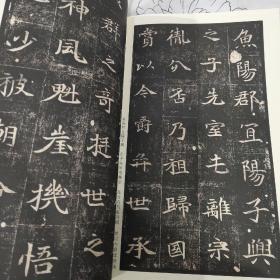 魚陽郡宜陽子興
之子先室屯離宗
胤分否乃祖歸國
賞以今爵弈世承
群之奇挺世之
神風魁崖機悟
少被朝